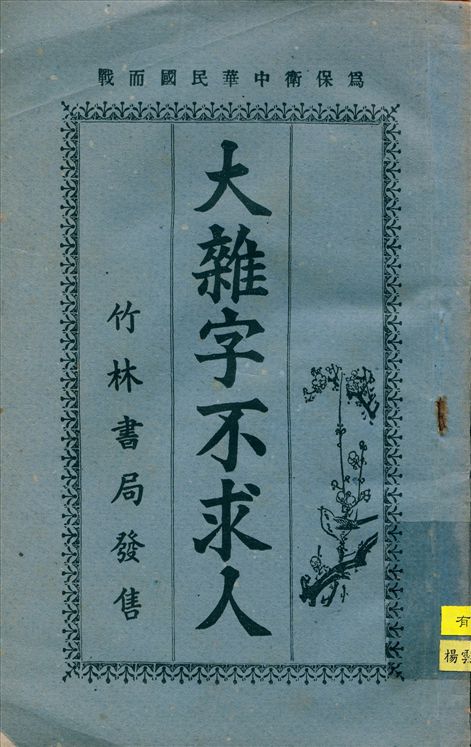 為保衛中華民國而戰
大雜字不求人
竹林書局發售
有
楊雲